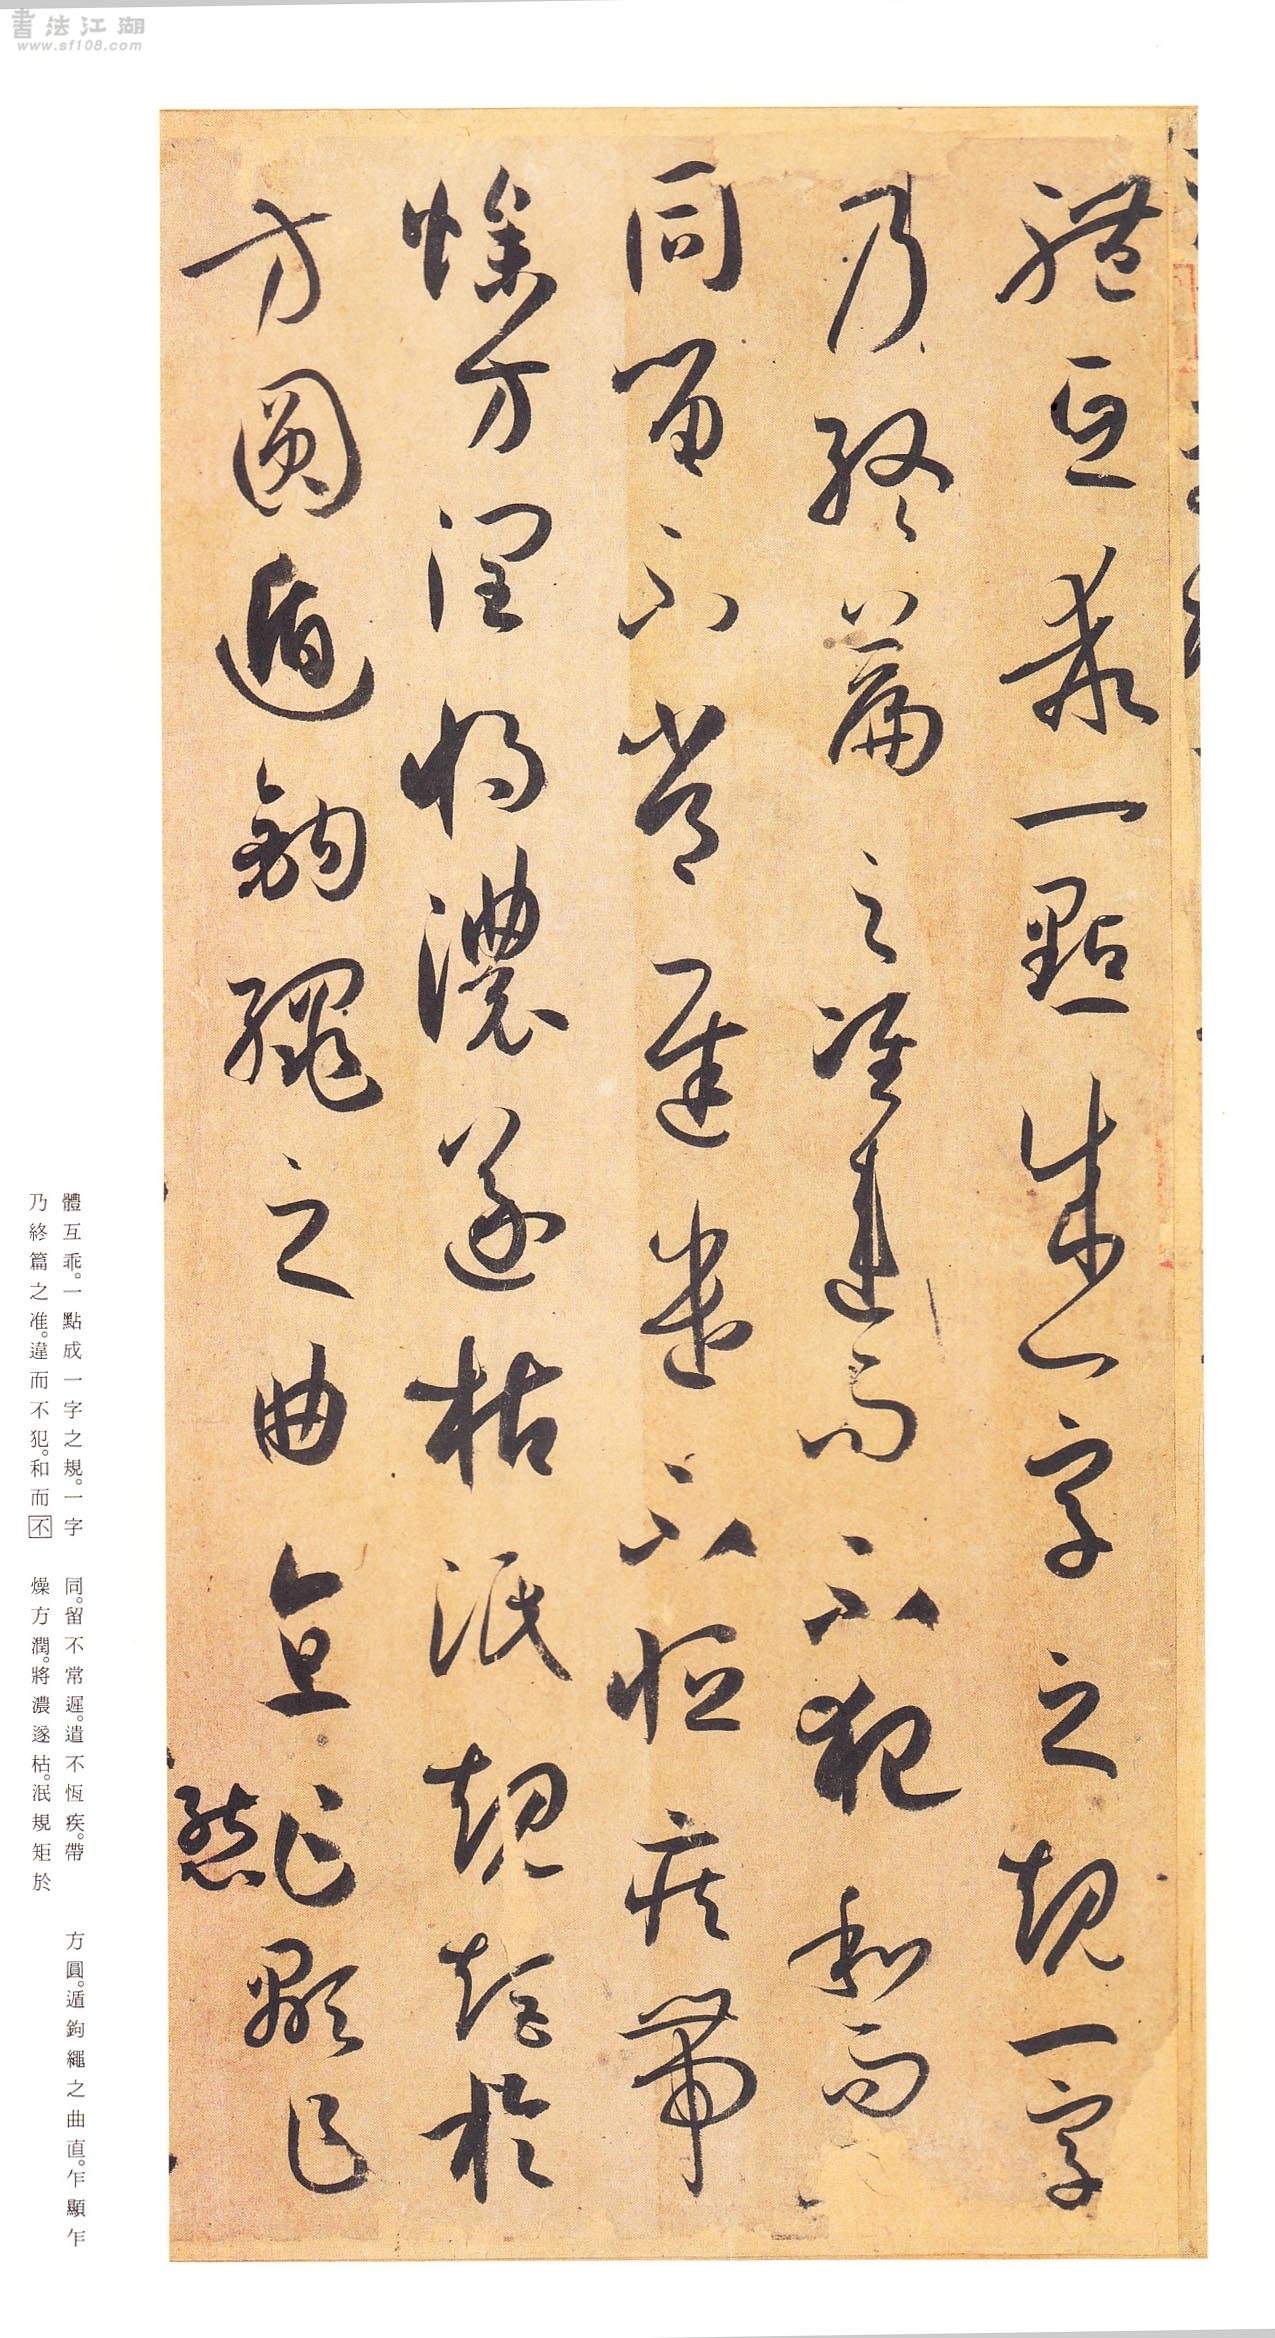 書法江湖
www.sf108.com
體互乖一點成一字之規一字
乃終篇之准違而不犯和而
同留不常遲遣不恒疾帶
燥方潤將濃遂枯泯規矩於
方圓遁鉤繩之曲直乍顯乍
體互乖。一點成一字之規。一字
乃終篇之准。違而不犯。和而不
同。留不常遲。遣不恆疾。帶
燥方潤。將濃遂枯。泯規矩於
方圓。遁鉤繩之曲直。乍顯乍